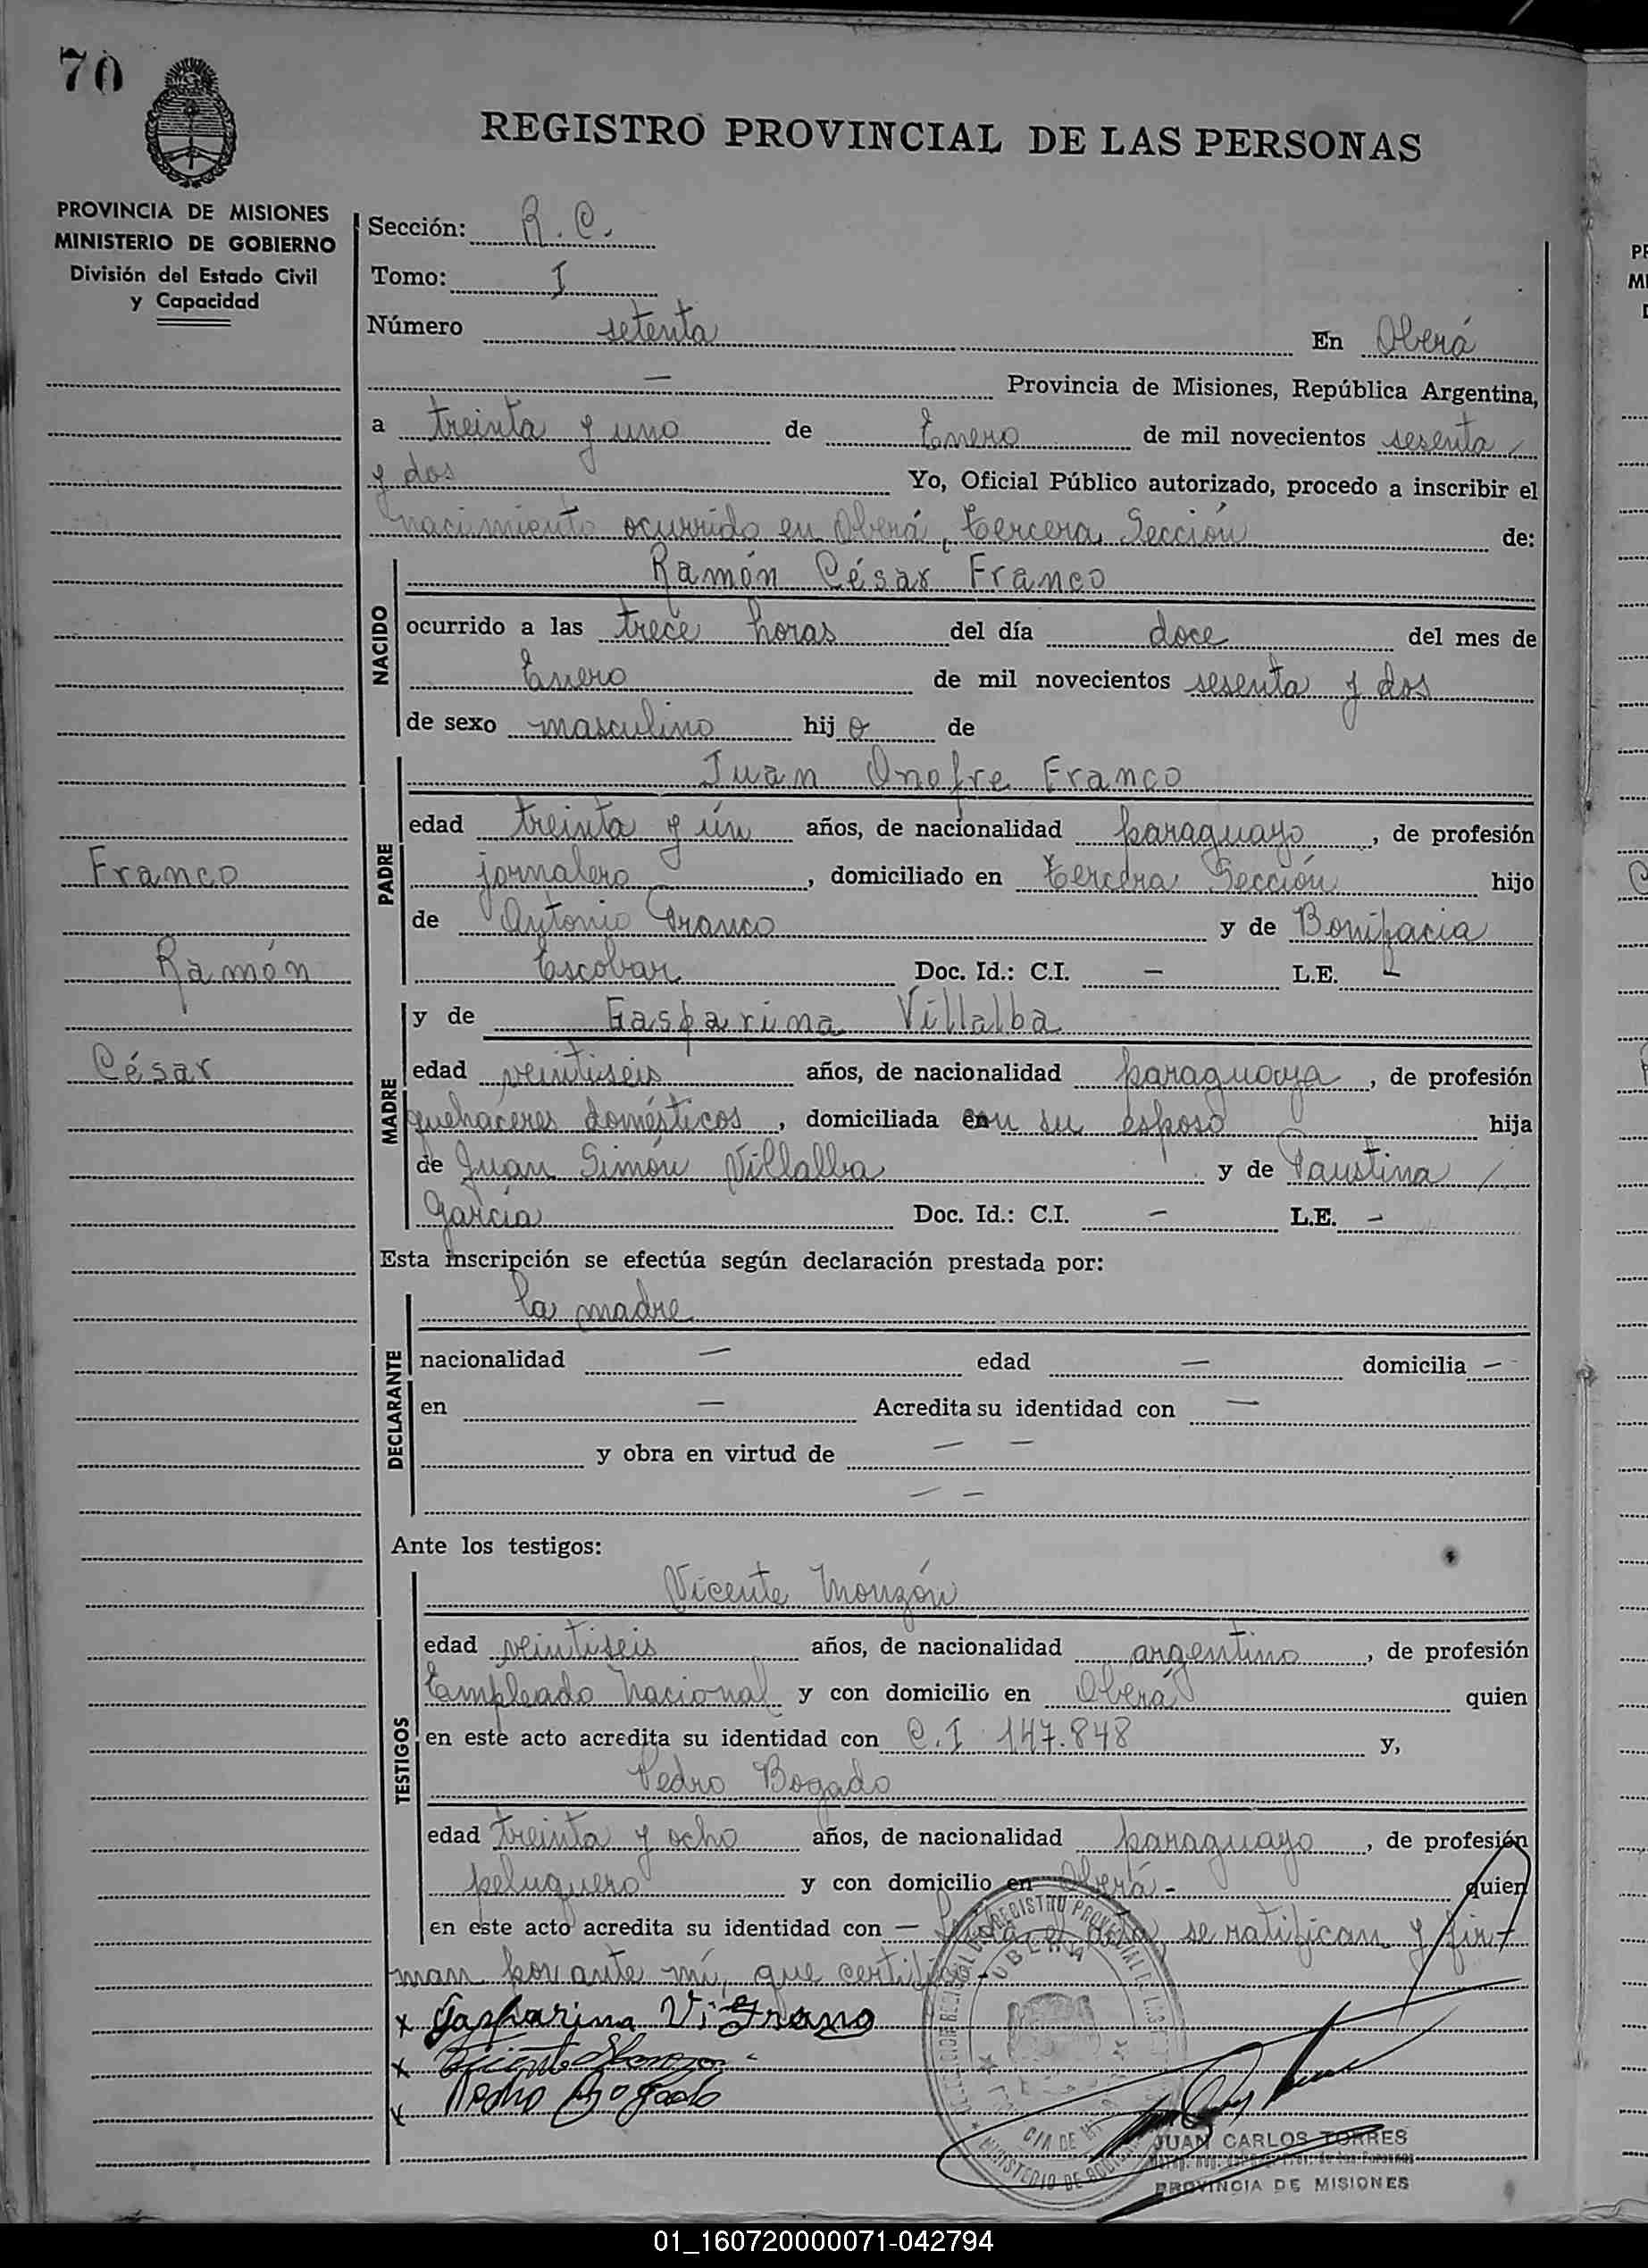 70
REGISTRO PROVINCIAL DE LAS PERSONAS
PROVINCIA DE MISIONES
MINISTERIO DE GOBIERNO
División del Estado Civil
y Capacidad
Sección: R. C.
Tomo: I
Número setenta En Oberá
— Provincia de Misiones, República Argentina,
a treinta y uno de Enero de mil novecientos sesenta
y dos Yo, Oficial Público autorizado, procedo a inscribir el
nacimiento ocurrido en Oberá, tercera Sección de:
NACIDO
Ramón César Franco
ocurrido a las trece horas del día doce del mes de
Enero de mil novecientos sesenta y dos
de sexo masculino hijo de
PADRE
Juan Onofre Franco
edad treinta y ún años, de nacionalidad paraguayo, de profesión
jornalero, domiciliado en tercera Sección hijo
de Antonio Franco y de Bonifacia
Escobar Doc. Id.: C.I. — L.E. —
Franco
Ramón
César
MADRE
y de Gasparina Villalba
edad veintiseis años, de nacionalidad paraguaya, de profesión
quehaceres domésticos, domiciliada con su esposo hija
de Juan Simón Villalba y de Faustina
García Doc. Id.: C.I. — L.E. —
Esta inscripción se efectúa según declaración prestada por:
DECLARANTE
la madre
nacionalidad — edad — domicilia —
en — Acredita su identidad con —
y obra en virtud de — —
— —
Ante los testigos:
TESTIGOS
Vicente Monzón
edad veintiseis años, de nacionalidad argentino, de profesión
Empleado Nacional y con domicilio en Oberá quien
en este acto acredita su identidad con C.I 147.848 y,
Pedro Bogado
edad treinta y ocho años, de nacionalidad paraguayo, de profesión
peluquero y con domicilio en Oberá - quien
en este acto acredita su identidad con — Leída el acta, se ratifican y fir
man por ante mí, que certifico.-
x Gasparina Vi Franco
x Vicente Monzon
x Pedro Bogado
JUAN CARLOS TORRES
PROVINCIA DE MISIONES
01_160720000071-042794